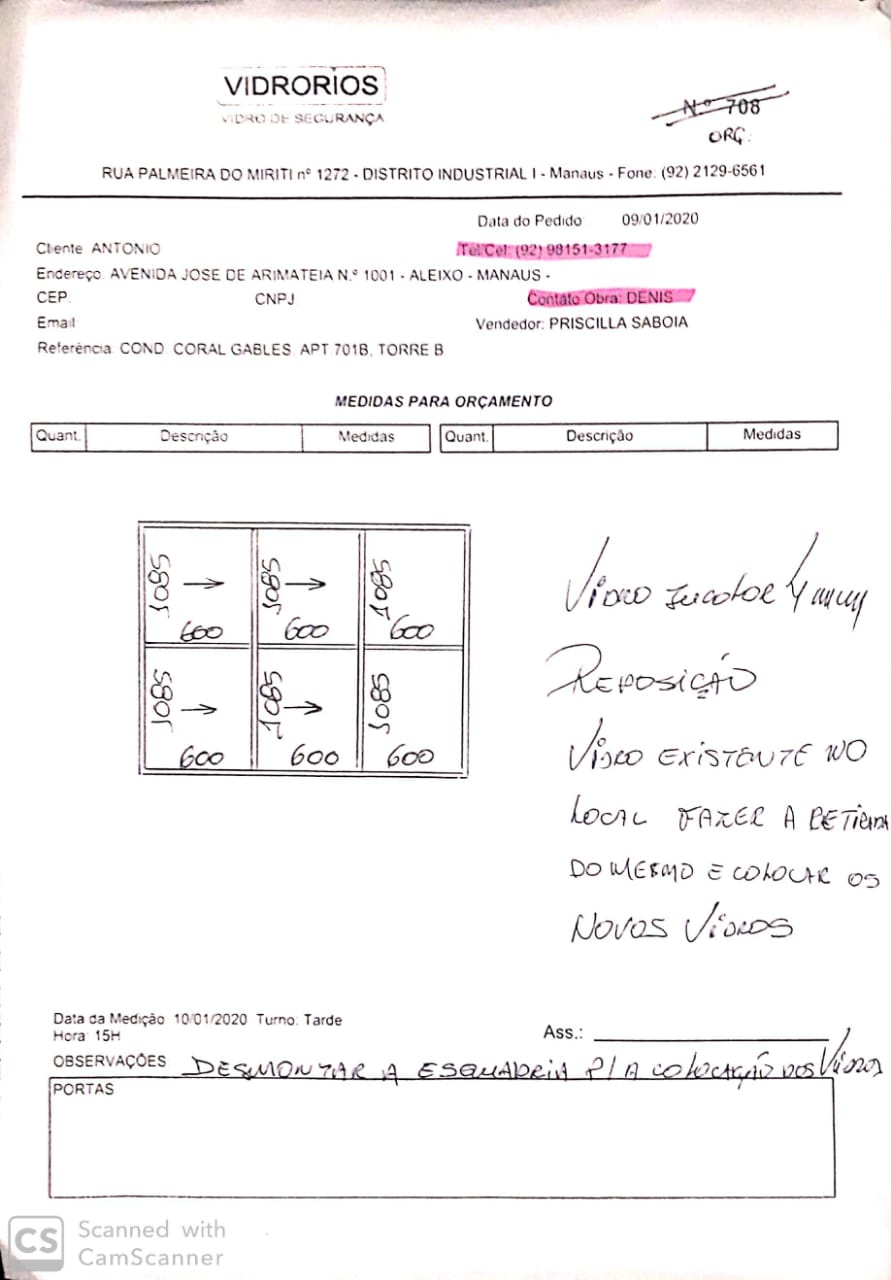 VIDRORIOS
VIDRO DE SEGURANÇA
Nº 708
ORÇ.
RUA PALMEIRA DO MIRITI nº 1272 - DISTRITO INDUSTRIAL I - Manaus - Fone: (92) 2129-6561
Data do Pedido 09/01/2020
Cliente ANTONIO Tel/Cel: (92) 98151-3177
Endereço: AVENIDA JOSE DE ARIMATEIA N.º 1001 - ALEIXO - MANAUS -
CEP. CNPJ Contato Obra: DENIS
Email Vendedor: PRISCILLA SABOIA
Referência: COND. CORAL GABLES. APT 701B, TORRE B
MEDIDAS PARA ORÇAMENTO
Quant. Descrição Medidas Quant. Descrição Medidas
1085 → 1085 → 1085
600 600 600
1085 → 1085 → 1085
600 600 600
VIDRO INCOLOR 4 mm
REPOSIÇÃO
VIDRO EXISTENTE NO
LOCAL FAZER A RETIRADA
DO MESMO E COLOCAR OS
NOVOS VIDROS
Data da Medição 10/01/2020 Turno: Tarde
Hora: 15H
Ass.:
OBSERVAÇÕES DESMONTAR A ESQUADRIA P/ A COLOCAÇÃO DOS VIDROS
PORTAS
CS Scanned with
CamScanner